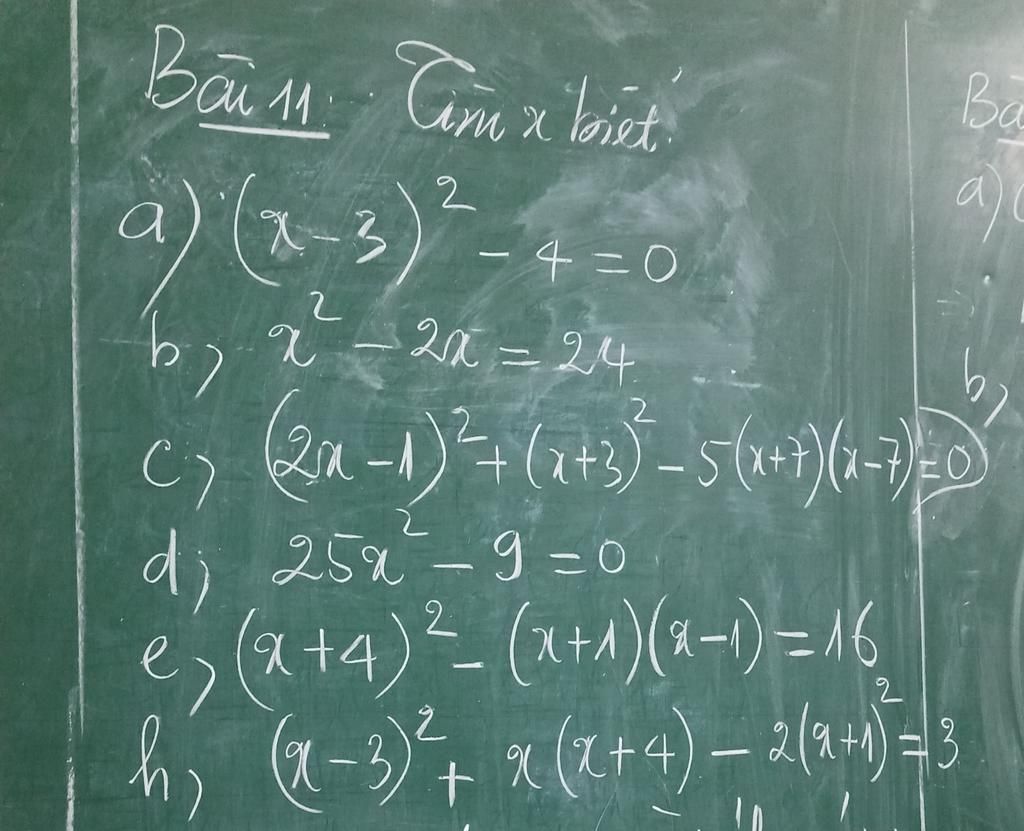 Bài 11: Tìm x biết:
a) (x-3)² - 4 = 0
b, x² - 2x = 24
c, (2x-1)² + (x+3)² - 5(x+7)(x-7) = 0
d, 25x² - 9 = 0
e, (x+4)² - (x+1)(x-1) = 16
h, (x-3)² + x(x+4) - 2(x+1)² = 3
Bà
a) (
b,